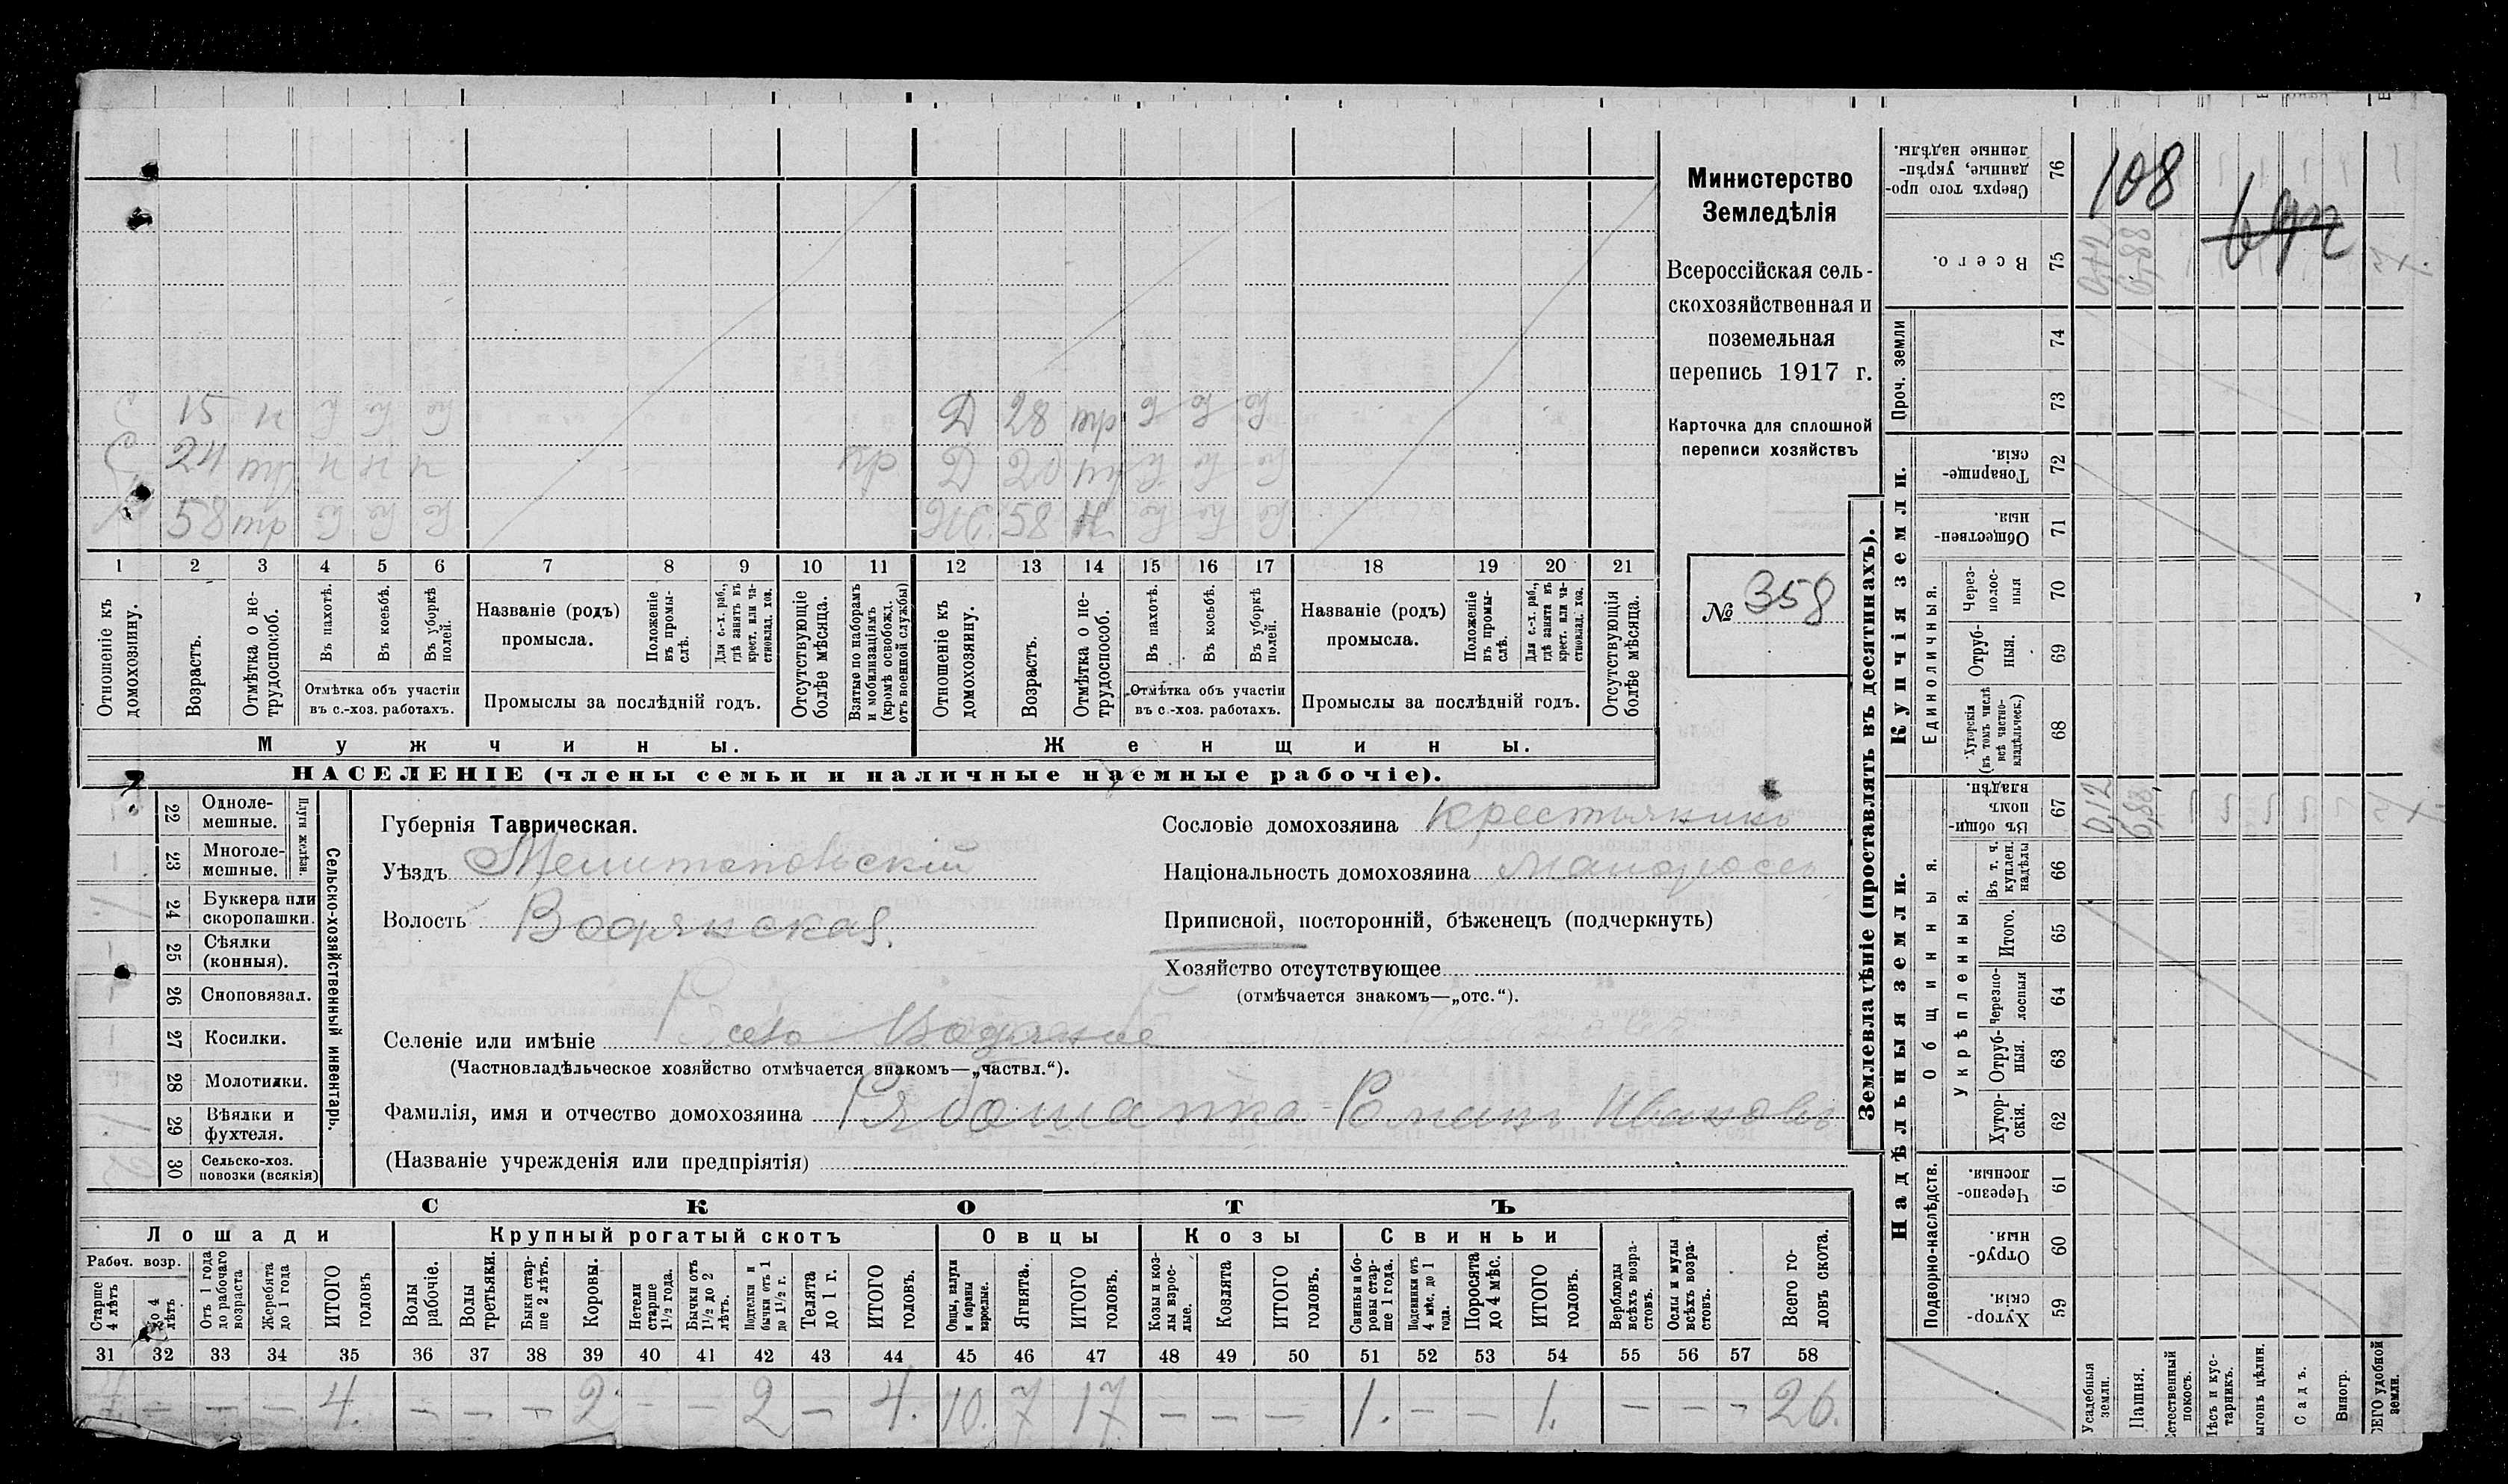 Министерство
Земледѣлія
Всероссійская сель-
скохозяйственная и
поземельная
перепись 1917 г.
Карточка для сплошной
переписи хозяйствъ
№ 358
108
С 15 н
24
58 тр
Д 28 тр
Д 20
58 н
1 2 3 4 5 6 7 8 9 10 11 12 13 14 15 16 17 18 19 20 21
Отношеніе къ домохозяину.
Возрастъ.
Отмѣтка о не-трудоспособ.
Въ пахотѣ.
Въ косьбѣ.
Въ уборкѣ полей.
Отмѣтка объ участіи въ с.-хоз. работахъ.
Названіе (родъ) промысла.
Положеніе въ промы-слѣ.
Для с.-х. раб., гдѣ занятъ въ крест. или ча-стновлад. хоз.
Промыслы за послѣдній годъ.
Отсутствующіе болѣе мѣсяца.
Взятые по наборамъ и мобилизаціямъ (кромѣ освобожд. отъ военной службы)
Отношеніе къ домохозяину.
Возрастъ.
Отмѣтка о не-трудоспособ.
Въ пахотѣ.
Въ косьбѣ.
Въ уборкѣ полей.
Отмѣтка объ участіи въ с.-хоз. работахъ.
Названіе (родъ) промысла.
Положеніе въ промы-слѣ.
Для с.-х. раб., гдѣ занята въ крест. или ча-стновлад. хоз.
Промыслы за послѣдній годъ.
Отсутствующія болѣе мѣсяца.
Мужчины. Женщины.
НАСЕЛЕНІЕ (члены семьи и наличные наемные рабочіе).
Сельско-хозяйственный инвентарь.
Плуги желѣзн.
22 Одноле-мешные.
23 Многоле-мешные.
24 Буккера или скоропашки.
25 Сѣялки (конныя).
26 Сноповязал.
27 Косилки.
28 Молотилки.
29 Вѣялки и фухтеля.
30 Сельско-хоз. повозки (всякія)
Губернія Таврическая.
Уѣздъ Мелитопольскій
Волость Водянская.
Селеніе или имѣніе село Водяное
(Частновладѣльческое хозяйство отмѣчается знакомъ—„частвл.“).
Фамилія, имя и отчество домохозяина Рябошапка Романъ Ивановъ
(Названіе учрежденія или предпріятія)
Сословіе домохозяина крестьянинъ
Національность домохозяина малороссъ
Приписной, посторонній, бѣженецъ (подчеркнуть)
Хозяйство отсутствующее
(отмѣчается знакомъ—„отс.“).
СКОТЪ
Лошади Крупный рогатый скотъ Овцы Козы Свиньи
Рабоч. возр.
Старше 4 лѣтъ
до 4 лѣтъ
Отъ 1 года до рабочаго возраста
Жеребята до 1 года
ИТОГО головъ
Волы рабочіе.
Волы третьяки.
Быки стар-ше 2 лѣтъ.
Коровы.
Нетели старше 1½ года.
Бычки отъ 1½ до 2 лѣтъ.
Подтелки и бычки отъ 1 до 1½ г.
Телята до 1 г.
ИТОГО головъ.
Овцы, валухи и бараны взрослые.
Ягнята.
ИТОГО головъ.
Козы и коз-лы взрос-лые.
Козлята
ИТОГО головъ.
Свиньи и бо-ровы стар-ше 1 года.
Подсвинки отъ 4 мѣс. до 1 года.
Поросята до 4 мѣс.
ИТОГО головъ.
Верблюды всѣхъ возра-стовъ.
Ослы и мулы всѣхъ возра-стовъ.
Всего го-ловъ скота.
31 32 33 34 35 36 37 38 39 40 41 42 43 44 45 46 47 48 49 50 51 52 53 54 55 56 57 58
4 — — — 4. — — — 2 — — 2 — 4. 10. 7 17 — — — 1. — — 1. — — — 26.
Землевладѣніе (проставлять въ десятинахъ).
Надѣльныя земли. Купчія земли. Проч. земли
Подворно-наслѣдств.
Общинныя.
Укрѣпленныя.
Единоличныя.
Сверхъ того про-данные, укрѣп-ленные надѣлы. 76
Всего. 75 0,12 6,88
74
73
Товарище-скія. 72
Обществен-ныя. 71
Через-полос-ныя 70
Отруб-ныя. 69
Хуторскія (въ томъ числѣ всѣ частно-владѣльческ.) 68
Въ общин. польз. владѣн. 67 0,12 6,88
Въ т. ч. куплен. надѣлы 66
Итого. 65
Черезпо-лосныя 64
Отруб-ныя. 63
Хутор-скія. 62
Черезпо-лосныя. 61
Отруб-ныя. 60
Хутор-скія. 59
Усадебныя земли.
Пашня.
Естественный покосъ.
Лѣсъ и кус-тарникъ.
Выгонъ цѣлин.
Садъ.
Виногр.
ВСЕГО удобной земли.